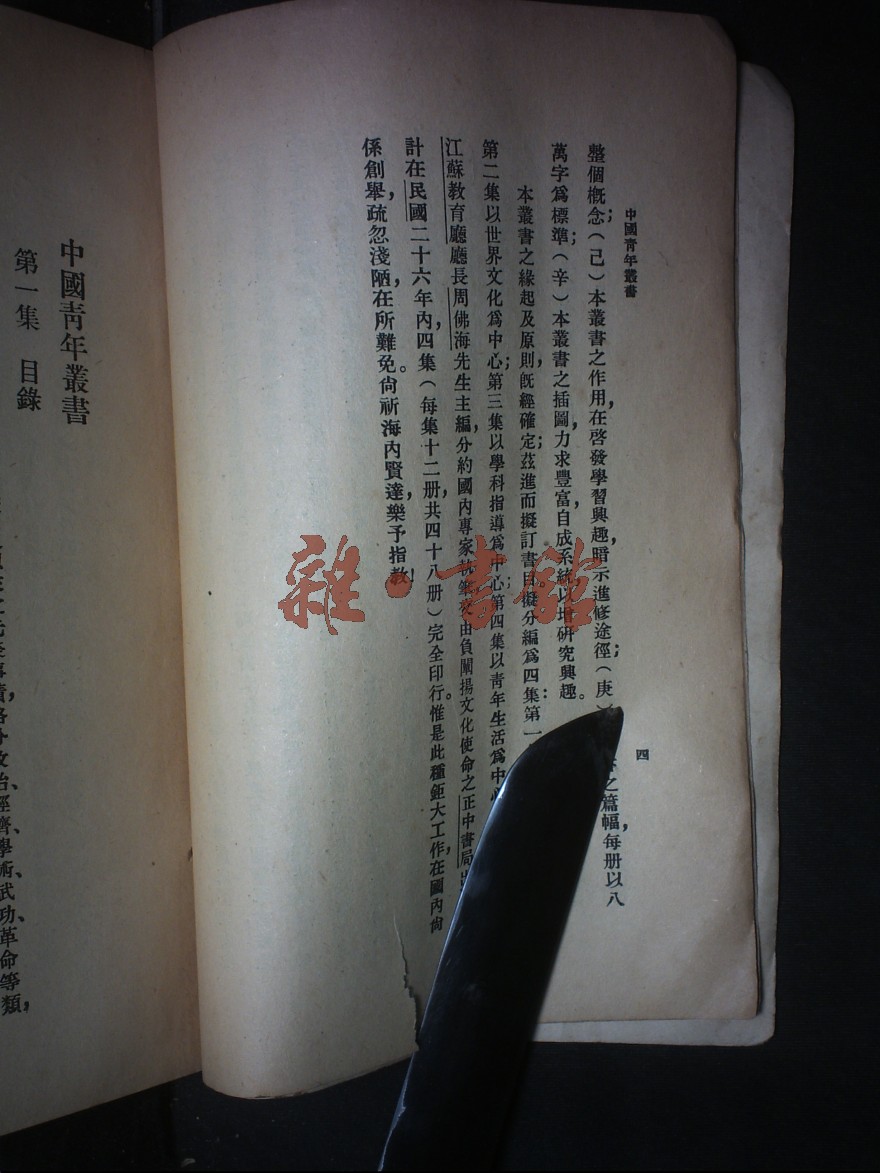 中國靑年叢書
四
整個槪念；（己）本叢書之作用，在啓發學習興趣，暗示進修途徑；（庚）之篇幅，每册以八
萬字爲標準；（辛）本叢書之插圖，力求豐富，自成系統，以增研究興趣。
本叢書之緣起及原則，旣經確定；茲進而擬訂書目，擬分編爲四集：第一
第二集以世界文化爲中心；第三集以學科指導爲中心；第四集以靑年生活爲中心
江蘇敎育廳廳長周佛海先生主編，分約國內專家執筆，交由負闡揚文化使命之正中書局
計在民國二十六年內，四集（每集十二册，共四十八册）完全印行。惟是此種鉅大工作，在國內尙
係創舉，疏忽淺陋，在所難免。尙祈海內賢達，樂予指敎！
中國靑年叢書
第一集 目錄
政治、經濟、學術、武功、革命等類，
雜·書館